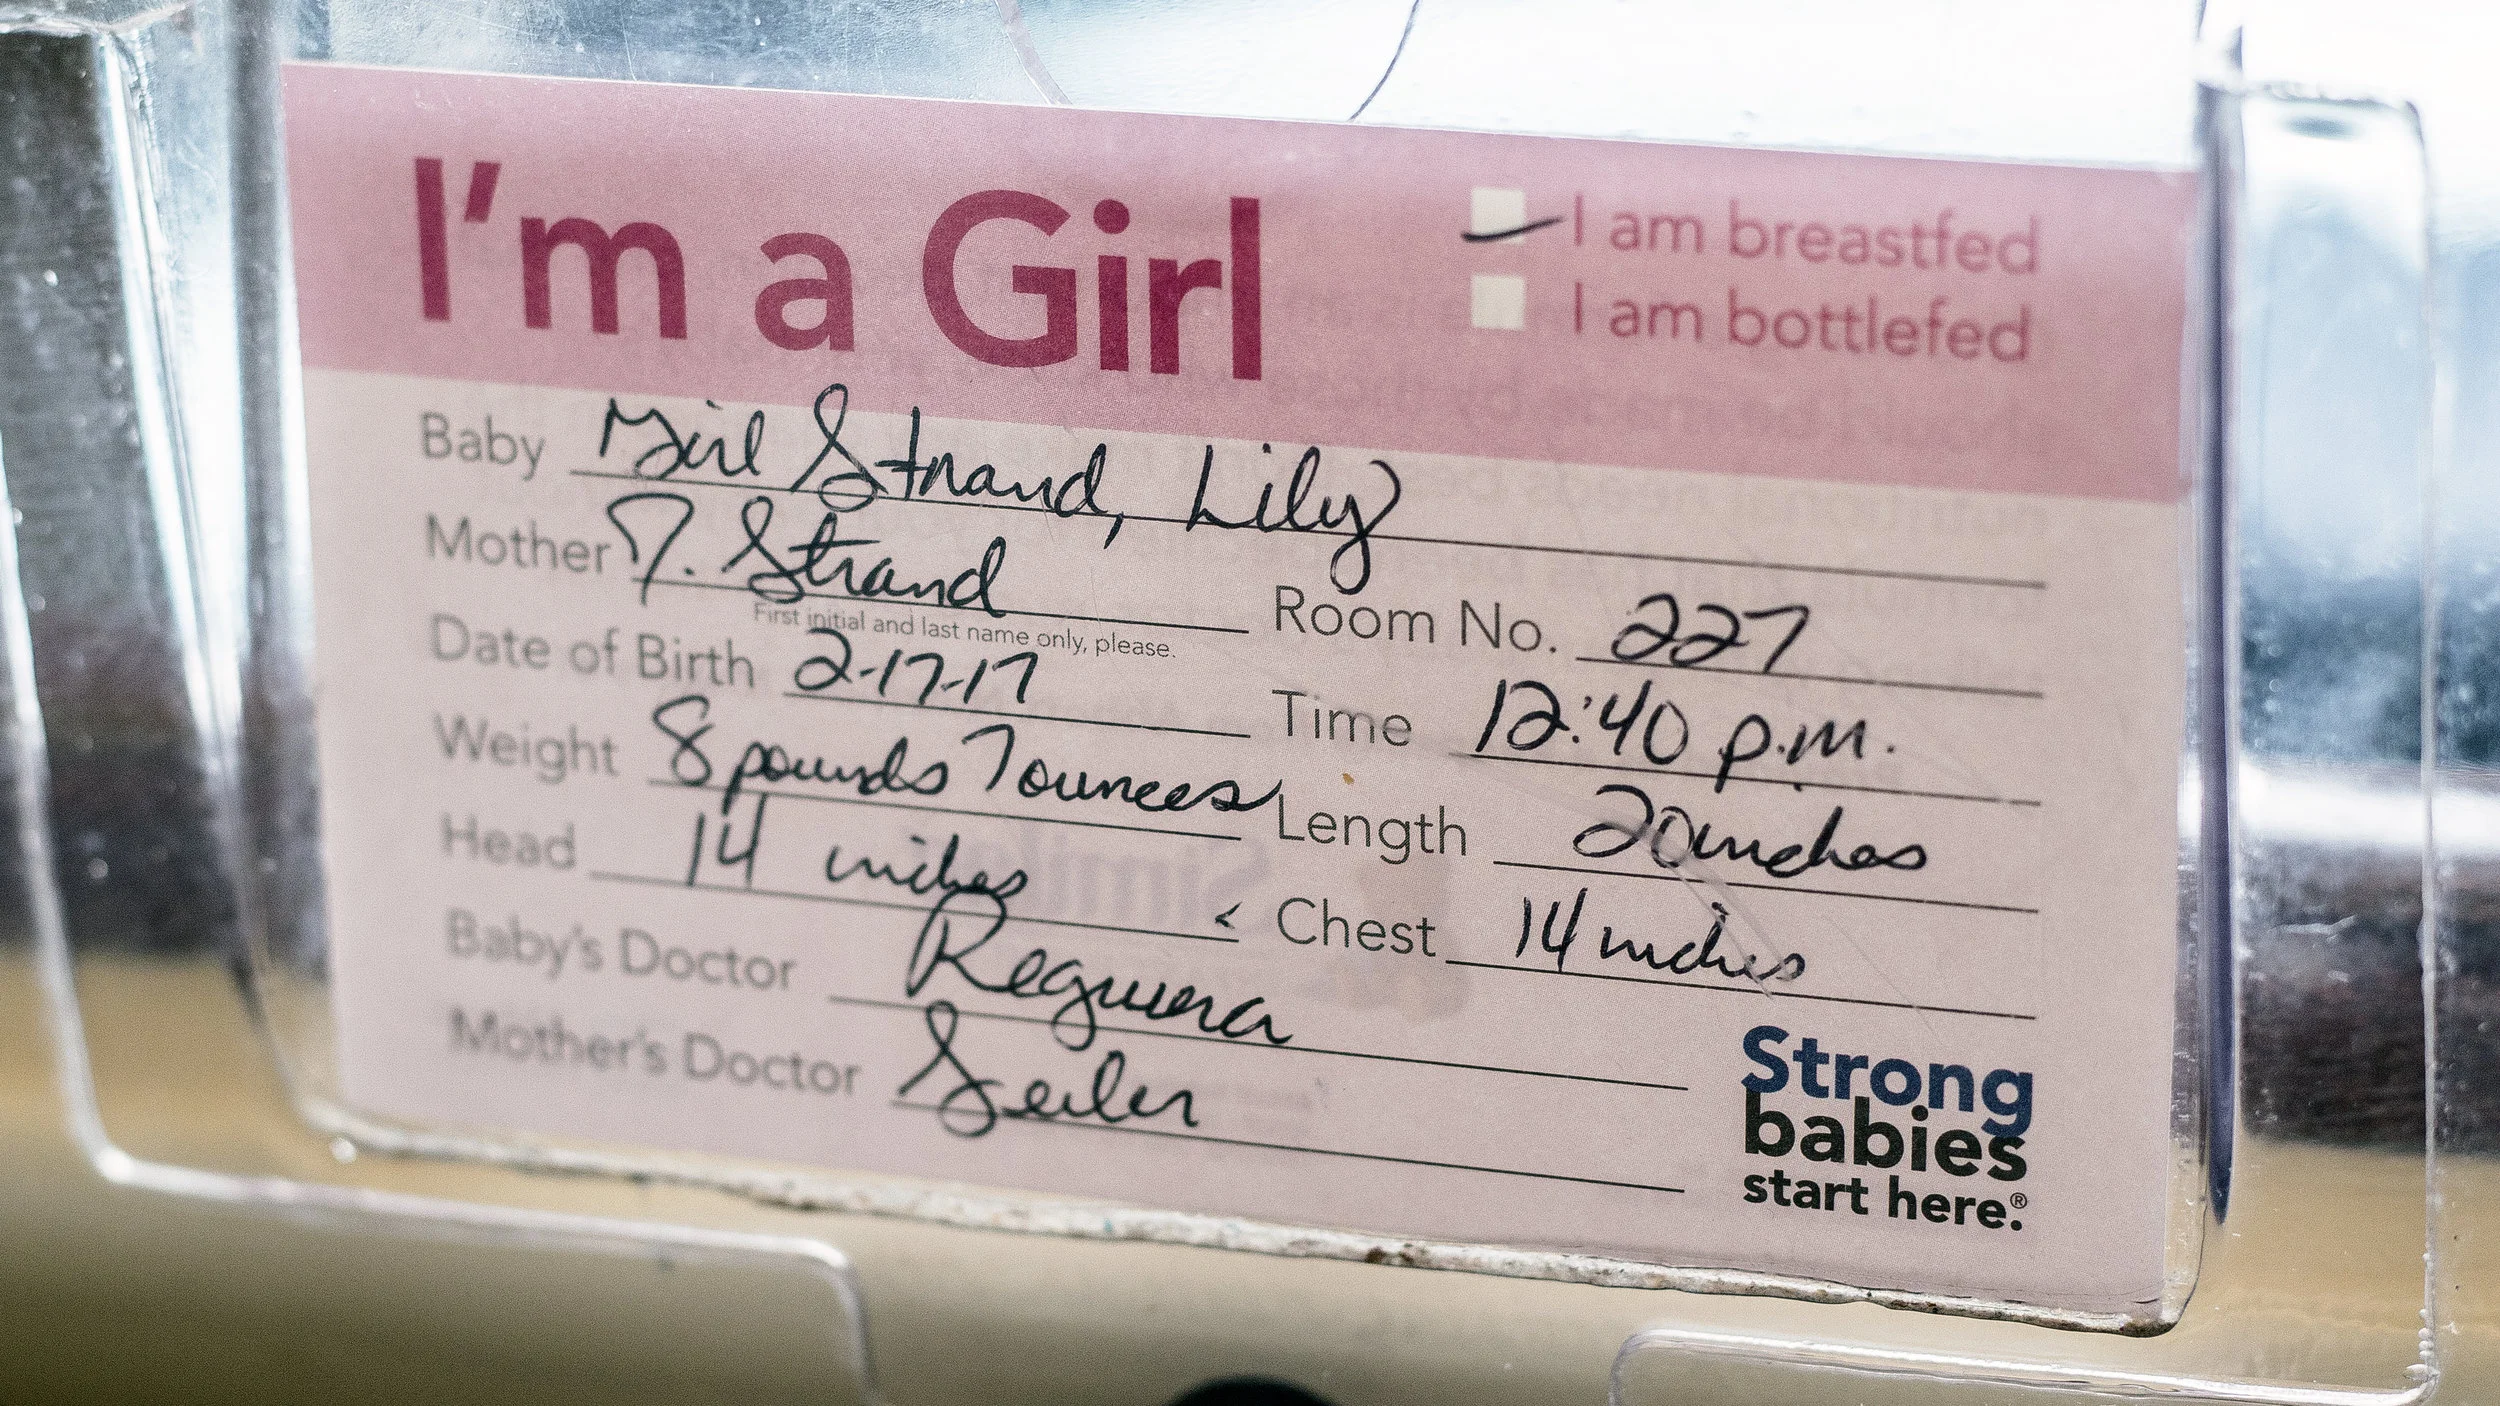 I'm a Girl
I am breastfed
I am bottlefed
Baby Girl Strand, Lily
Mother J. Strand Room No. 227
First initial and last name only, please.
Date of Birth 2-17-17 Time 12:40 p.m.
Weight 8 pounds 7 ounces Length 20 inches
Head 14 inches Chest 14 inches
Baby's Doctor Reguera
Mother's Doctor Seiler
Strong
babies
start here.®